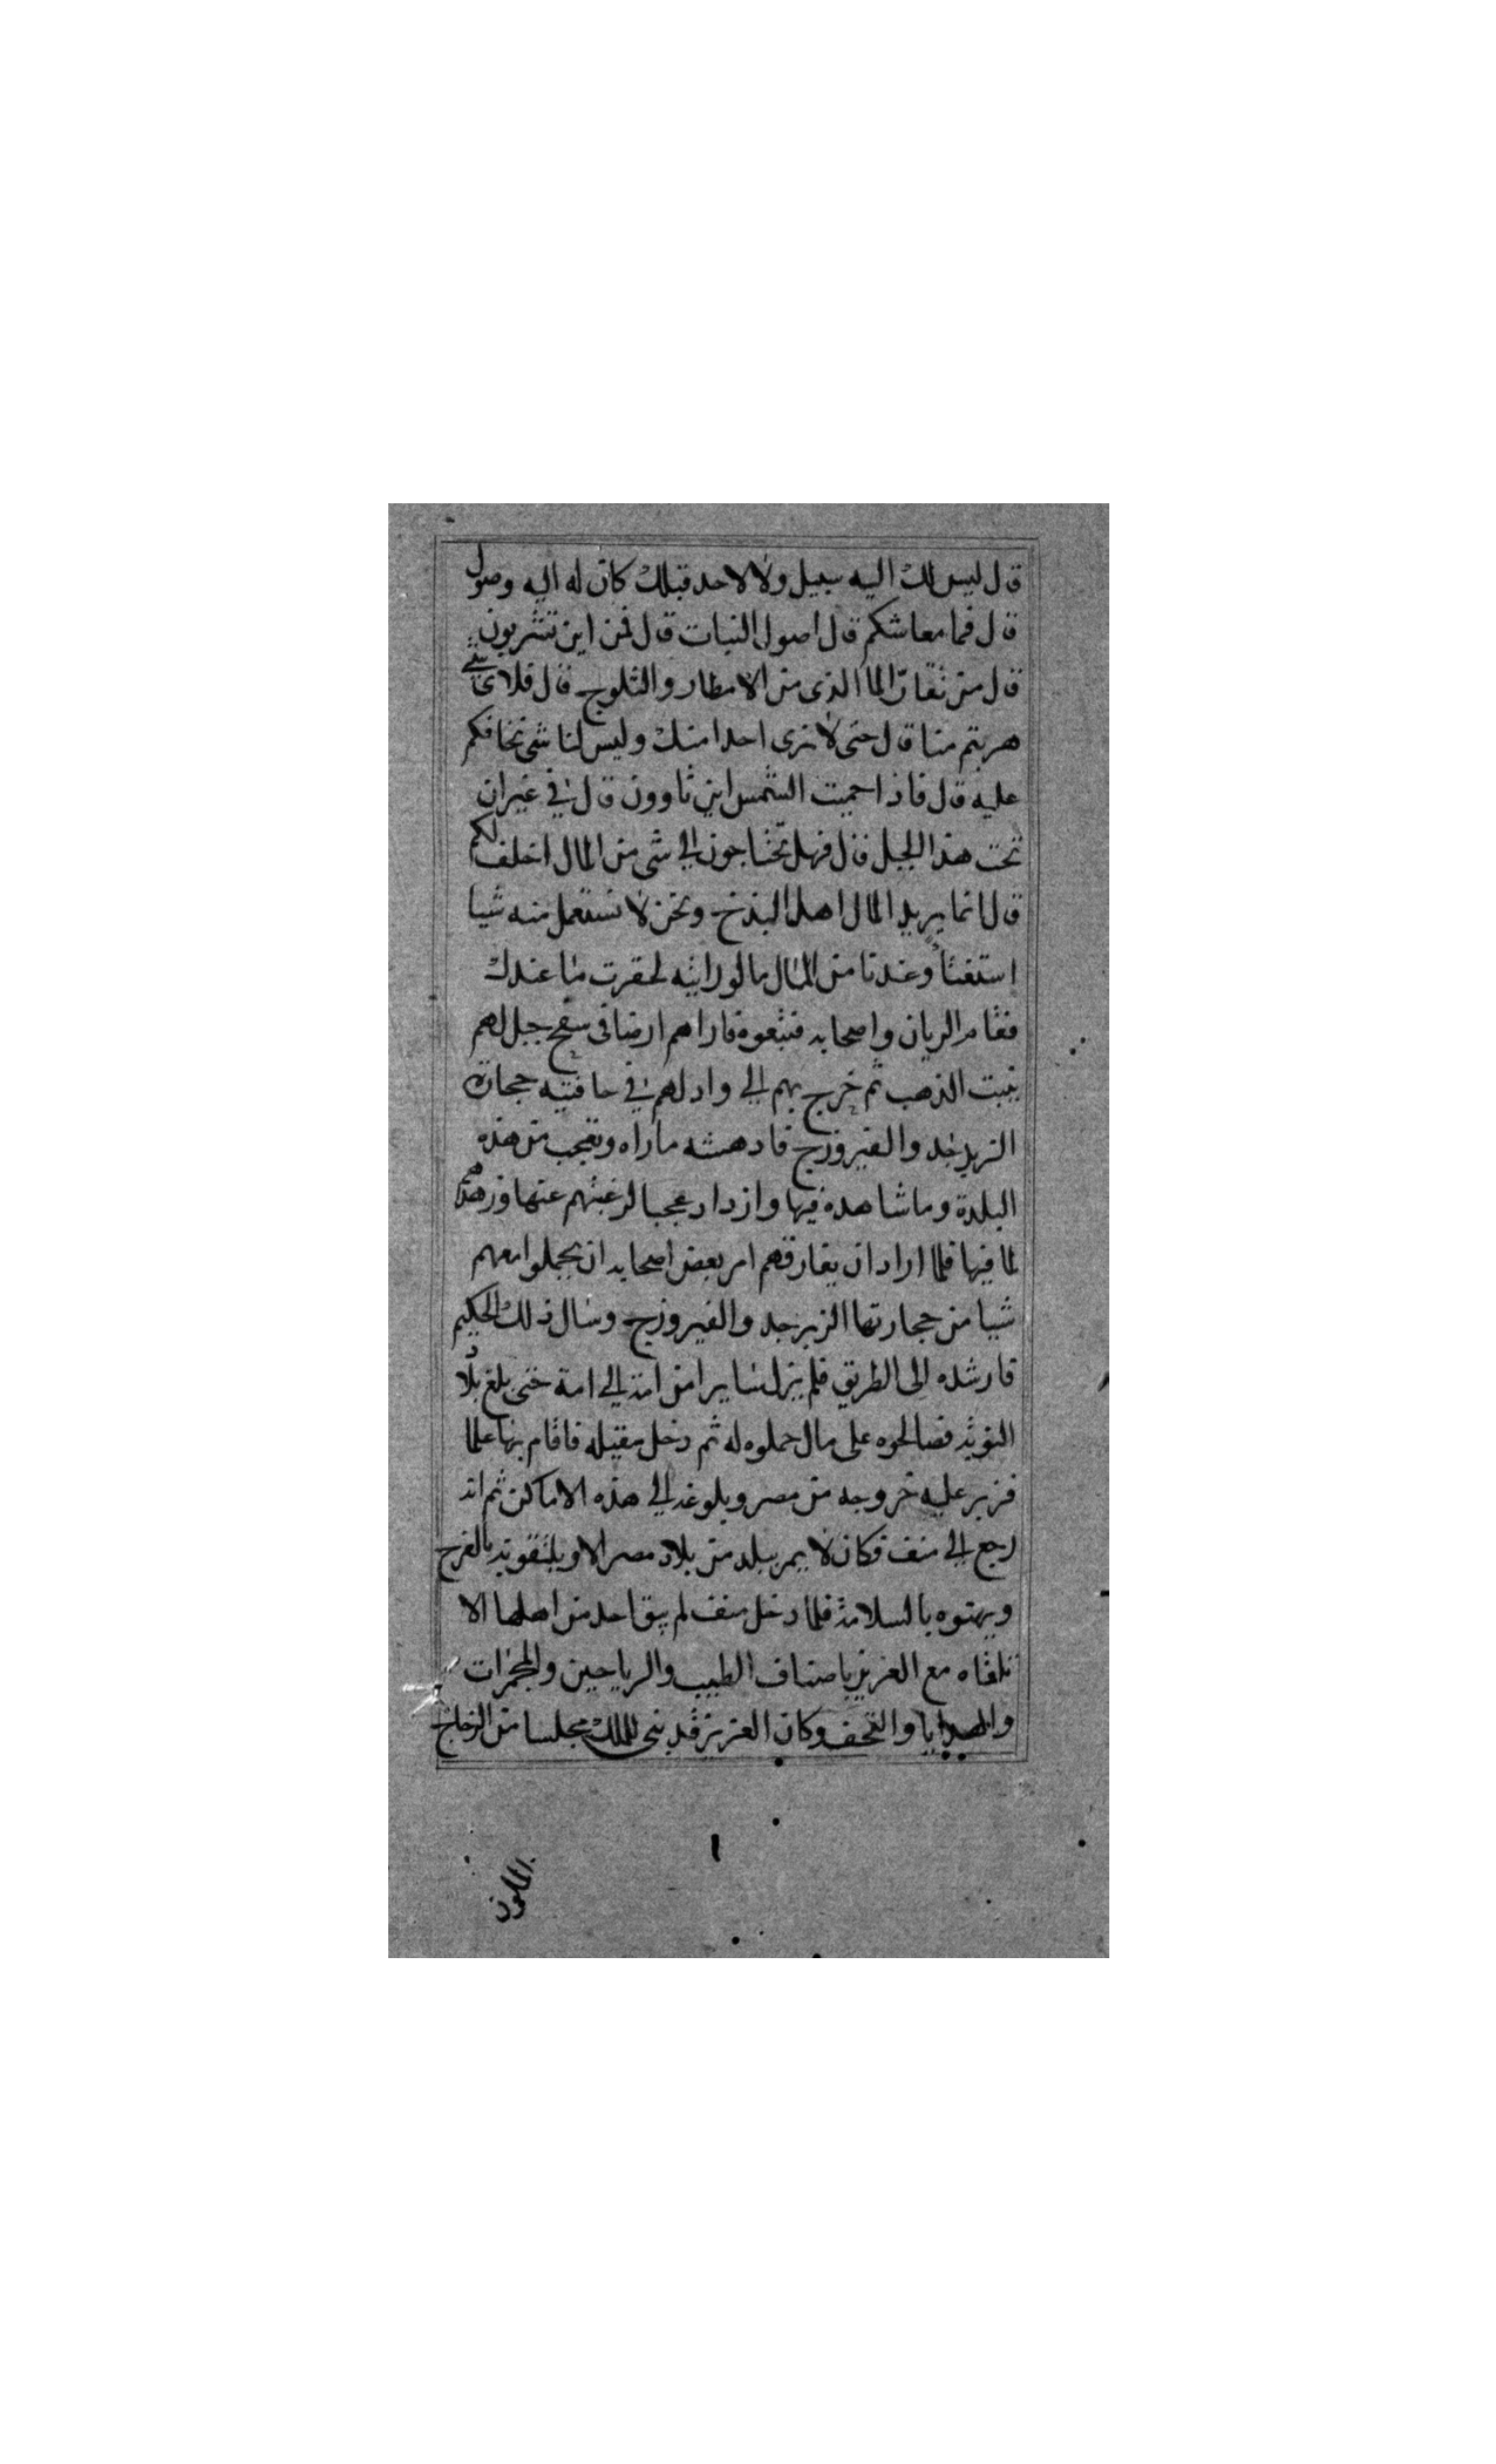 قال ليس لك اليه سبيل ولا لاحد قبلك كان له اليه وصول
قال فما معاشكم قال اصول النبات قال فمن اين تشربون
قال من نقار الما الذى من الامطار والثلوج قال فلاى شى
هربتم منا قال حتى لا نرى احدا منك وليس لنا شى نخافكم
عليه قال فاذا حميت الشمس اين تاوون قال في غيران
تحت هذا الجبل قال فهل تحتاجون الي شى من المال اخلف لكم
قال انما يريد المال اهل البذخ ونحن لا نستعمل منه شيا
استغنآ وعندنا من المال ما لو رايته لحقرت ما عندك
فقام الريان واصحابه فتبعوه فاراهم ارضا فى سفح جبل لهم
ينبت الذهب ثم خرج بهم الي واد لهم في حافتيه حجارة
الزبرجد والفيروزج فادهشه ما راه وتعجب من هذه
البلدة وما شاهده فيها وازداد عجبا لرغبتهم عنها وزهدهم
لما فيها فلما اراد ان يفارقهم امر بعض اصحابه ان يحملوا معهم
شيا من حجارتها الزبرجد والفيروزج وسال ذلك الحكيم
فارشده الى الطريق فلم يزل سايرا من امة الي امة حتى بلغ بلاد
النوبة فصالحوه على مال حملوه له ثم دخل مقيله فاقام بها علما
فزبر عليه خروجه من مصر وبلوغه الي هذه الاماكن ثم انه
رجع الي منف فكان لا يمر ببلد من بلاد مصر الا ويلتقونه بالفرح
ويهنوه بالسلامة فلما دخل منف لم يبق احد من اهلها الا
تلقاه مع العزيز باصناف الطيب والرياحين والمجمرات
والهدايا والتحف وكان العزيز قد بنى للملك مجلسا من الزجاج
١
الملون